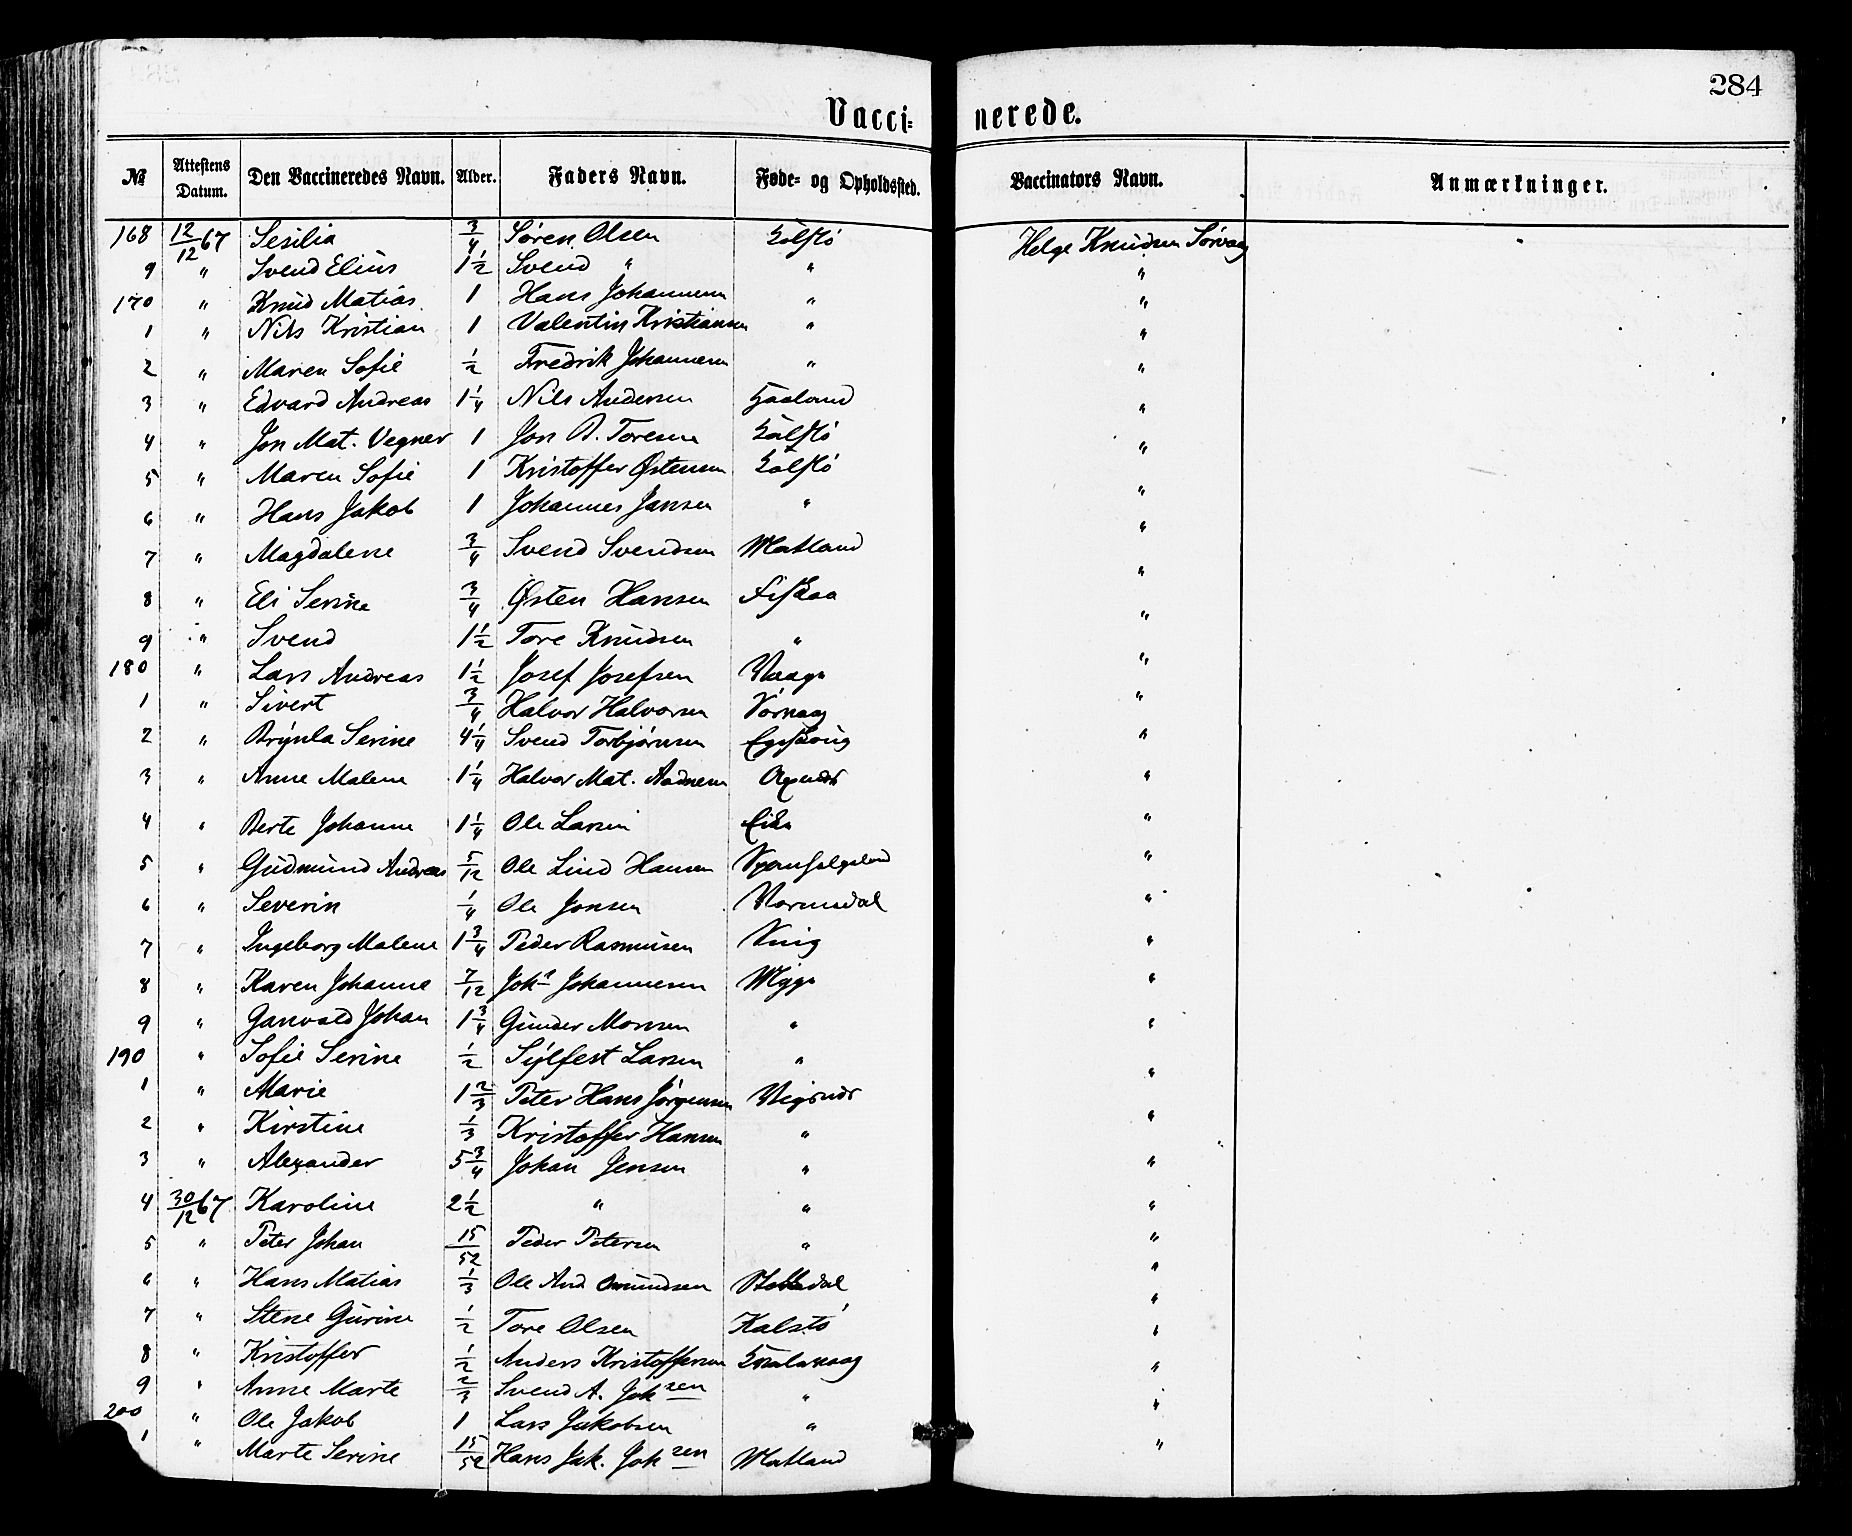 284
Vacci= nerede.
№ Attestens Datum. Den Vaccineredes Navn. Alder. Faders Navn. Føde- og Opholdssted. Vaccinators Navn. Anmærkninger.
168 12/12 67 Sesilia 3/4 Søren Olsen Helge Knudsen Sørvaag
9 " Svend Elius 1 1/2 Svend " " "
170 " Knud Matias 1 Hans Johannesen " "
1 " Nils Kristian 1 Valentin Kristiansen " "
2 " Maren Sofie 1/2 Fredrik Johannesen " "
3 " Edvard Andreas 1 1/4 Nils Andersen Haaland "
4 " Jon Mat. Vegner 1 Jon B. Toresen "
5 " Maren Sofie 1 Kristoffer Østensen "
6 " Hans Jakob 1 Johannes Jansen " "
7 " Magdalene 3/4 Svend Svendsen Matland "
8 " Eli Serine 3/4 Østen Hansen Fiskaa "
9 " Svend 1 1/2 Tore Knudsen " "
180 " Lars Andreas 1 1/2 Josef Josefsen Vaage "
1 " Sivert 3/4 Halvor Halvorsen "
2 " Brynla Serine 4 1/4 Svend Torbjørnsen "
3 " Anne Malene 1 1/4 Halvor Mat. Aadnesen "
4 " Berte Johanne 1 1/4 Ole Larsen Eike "
5 " Gudmund Andreas 5/12 Ole Lind Hansen "
6 " Severin 1/4 Ole Jonsen Vormedal "
7 " Ingeborg Malene 1 3/4 Peder Rasmusen "
8 " Karen Johanne 7/12 Johs Johannesen "
9 " Ganvald Johan 1 3/4 Gunder Monsen " "
190 " Sofie Serine 1/2 Sylfest Larsen " "
1 " Marie 1 2/3 Peter Hans Jørgensen Vigsnæs "
2 " Kirstine 1/3 Kristoffer Hansen " "
3 " Alexander 5 3/4 Johan Jensen " "
4 30/12 67 Karoline 2 1/2 " " "
5 " Peter Johan 15/52 Peder Petersen " "
6 " Hans Matias 1/3 Ole And Omundsen "
7 " Stene Gurine 1/2 Tore Olsen Kalstø "
8 " Kristoffer 1/2 Anders Kristoffersen Kvalavaag "
9 " Anne Marte 2/3 Svend A. Johsen " "
200 " Ole Jakob 1 Lars Jakobsen " "
1 " Marte Serine 15/52 Hans Jak. Johsen Matland "